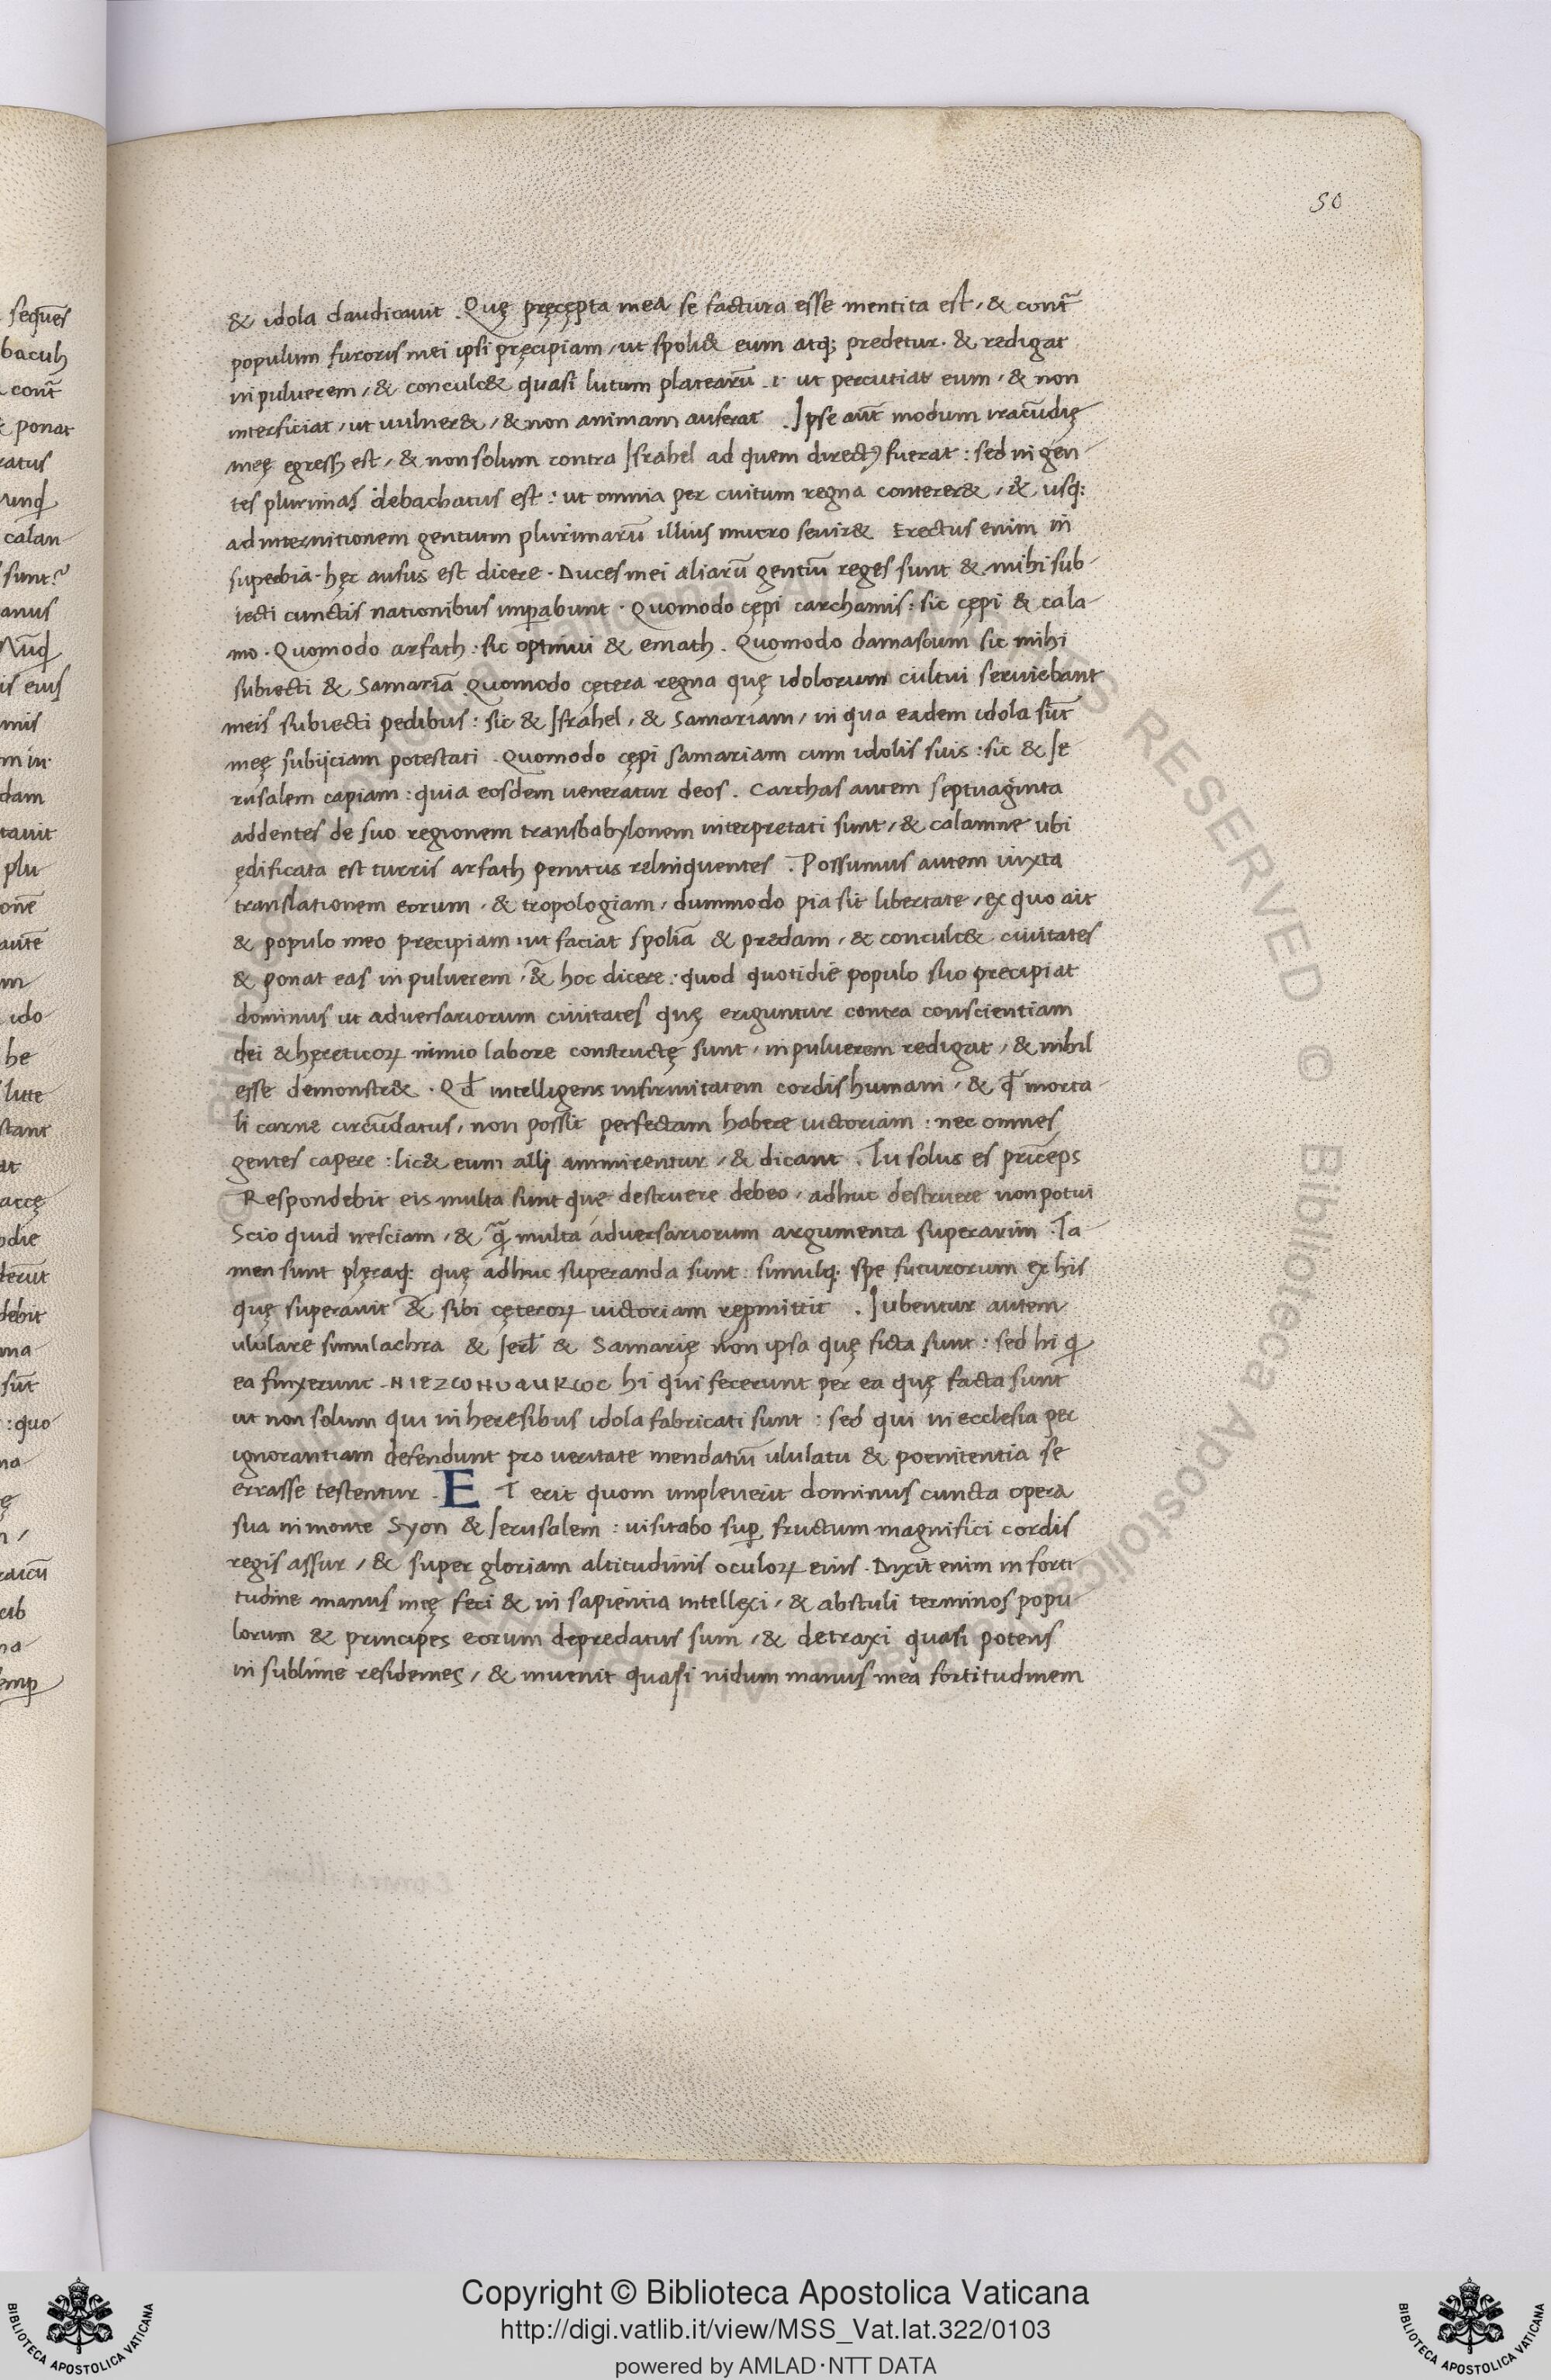 50
seques̄
bacuh
cont̄
ponat
ratus
unq̄
calan
sunt?
anus
Nūq̄
is eius
mis
m in
dam
tauit
plu
onē
autē
m
ido
he
litte
stant
at
accę
odie
derūt
debit
ma
sūt
: quo
na
ę
n /
raicū
cib
na
emp̱
& idola claudicauit . Quę pręcępta mea se factura esse mentita est / & cont̄
populum furoris mei ipsi pręcipiam / ut spoli& eum atq; predetur . & redigat
in puluerem / & conculc& quasi lutum platearū .i. ut percutiat eum / & non
interficiat / ut uulner& / & non animam auferat . Ipse aūt modum iracūdię
meę egressꝫ est / & non solum contra Israhel ad quem directꝰ fuerat : sed in gen
tes plurimas debachatus est : ut omnia per cuitum regna conterer& / & usq:
ad internitionem gentium plurimarū illius mucro seuir& Erectus enim in
superbia . hęc ausus est dicere . Duces mei aliarū gentiū reges sunt & mihi sub
iecti cunctis nationibus imp̱abunt . Quomodo cępi carchamis : sic cępi & cala
mo . Quomodo arfath : sic optinui & emath . Quomodo damascum sic mihi
subiecti & Samariā Quomodo cętera regna quę idolorum cultui seruiebant
meis subiecti pedibus : sic & Israhel / & Samariam / in qua eadem idola sūt
meę subijciam potestati . Quomodo cępi samariam cum idolis suis : sic & Ie
rusalem capiam : quia eosdem ueneratur deos . Carchas autem septuaginta
addentes de suo regionem transbabylonem interpretati sunt / & calamne ubi
ędificata est turris arfath penitus relinquentes . Possumus autem iuxta
translationem eorum . & tropologiam / dummodo pia sit libertate / ex quo ait
& populo meo precipiam ut faciat spoliā & predam / & conculc& ciuitates
& ponat eas in puluerem / &̄ hoc dicere : quod quotidie populo suo precipiat
dominus ut aduersariorum ciuitates quę eriguntur contra conscientiam
dei & hęreticoꝝ nimio labore constructę sunt / in puluerem redigat / & nihil
esse demonstr& . Qd̄ intelligens infirmitatem cordis humani / & q̄ morta
li carne circūdatus / non possit perfectam habere uictoriam : nec omnes
gentes capere : lic& eum alij ammirentur / & dicant . Tu solus es prīceps
Respondebit eis multa sunt quę destruere debeo / adhuc destruere non potui
Scio quid nesciam / & q̄ multa aduersariorum argumenta superarim . Ta
men sunt plęraq: quę adhuc superanda sunt : simulq: spe futurorum ex his
quę superauit &̄ sibi cęteroꝝ uictoriam repmittit . Iubentur autem
ululare simulachra & Ierl̄ & Samarię non ipsa quę ficta sunt : sed hi q̄
ea finxerunt . ΗΙΕΖωΗυαυΚωC hi qui fecerunt per ea quę facta sunt
ut non solum qui in heresibus idola fabricati sunt : sed qui in ecclesia per
ignorantiam defendunt pro ueritate mendatiū ululatu & poenitentia se
errasse testentur . ET erit quom impleuerit dominus cuncta opera
sua in monte Syon & Ierusalem : uisitabo sup̱ fructum magnifici cordis
regis assur / & super gloriam altitudinis oculoꝝ eius . Dixit enim in forti
tudine manus meę feci & in sapientia intellęxi / & abstuli terminos popu
lorum & principes eorum depredatus sum / & detraxi quasi potens
in sublime residentes / & inuenit quasi nidum manus mea fortitudinem
Copyright © Biblioteca Apostolica Vaticana
http://digi.vatlib.it/view/MSS_Vat.lat.322/0103
powered by AMLAD·NTT DATA
BIBLIOTECA APOSTOLICA VATICANA
BIBLIOTECA APOSTOLICA VATICANA